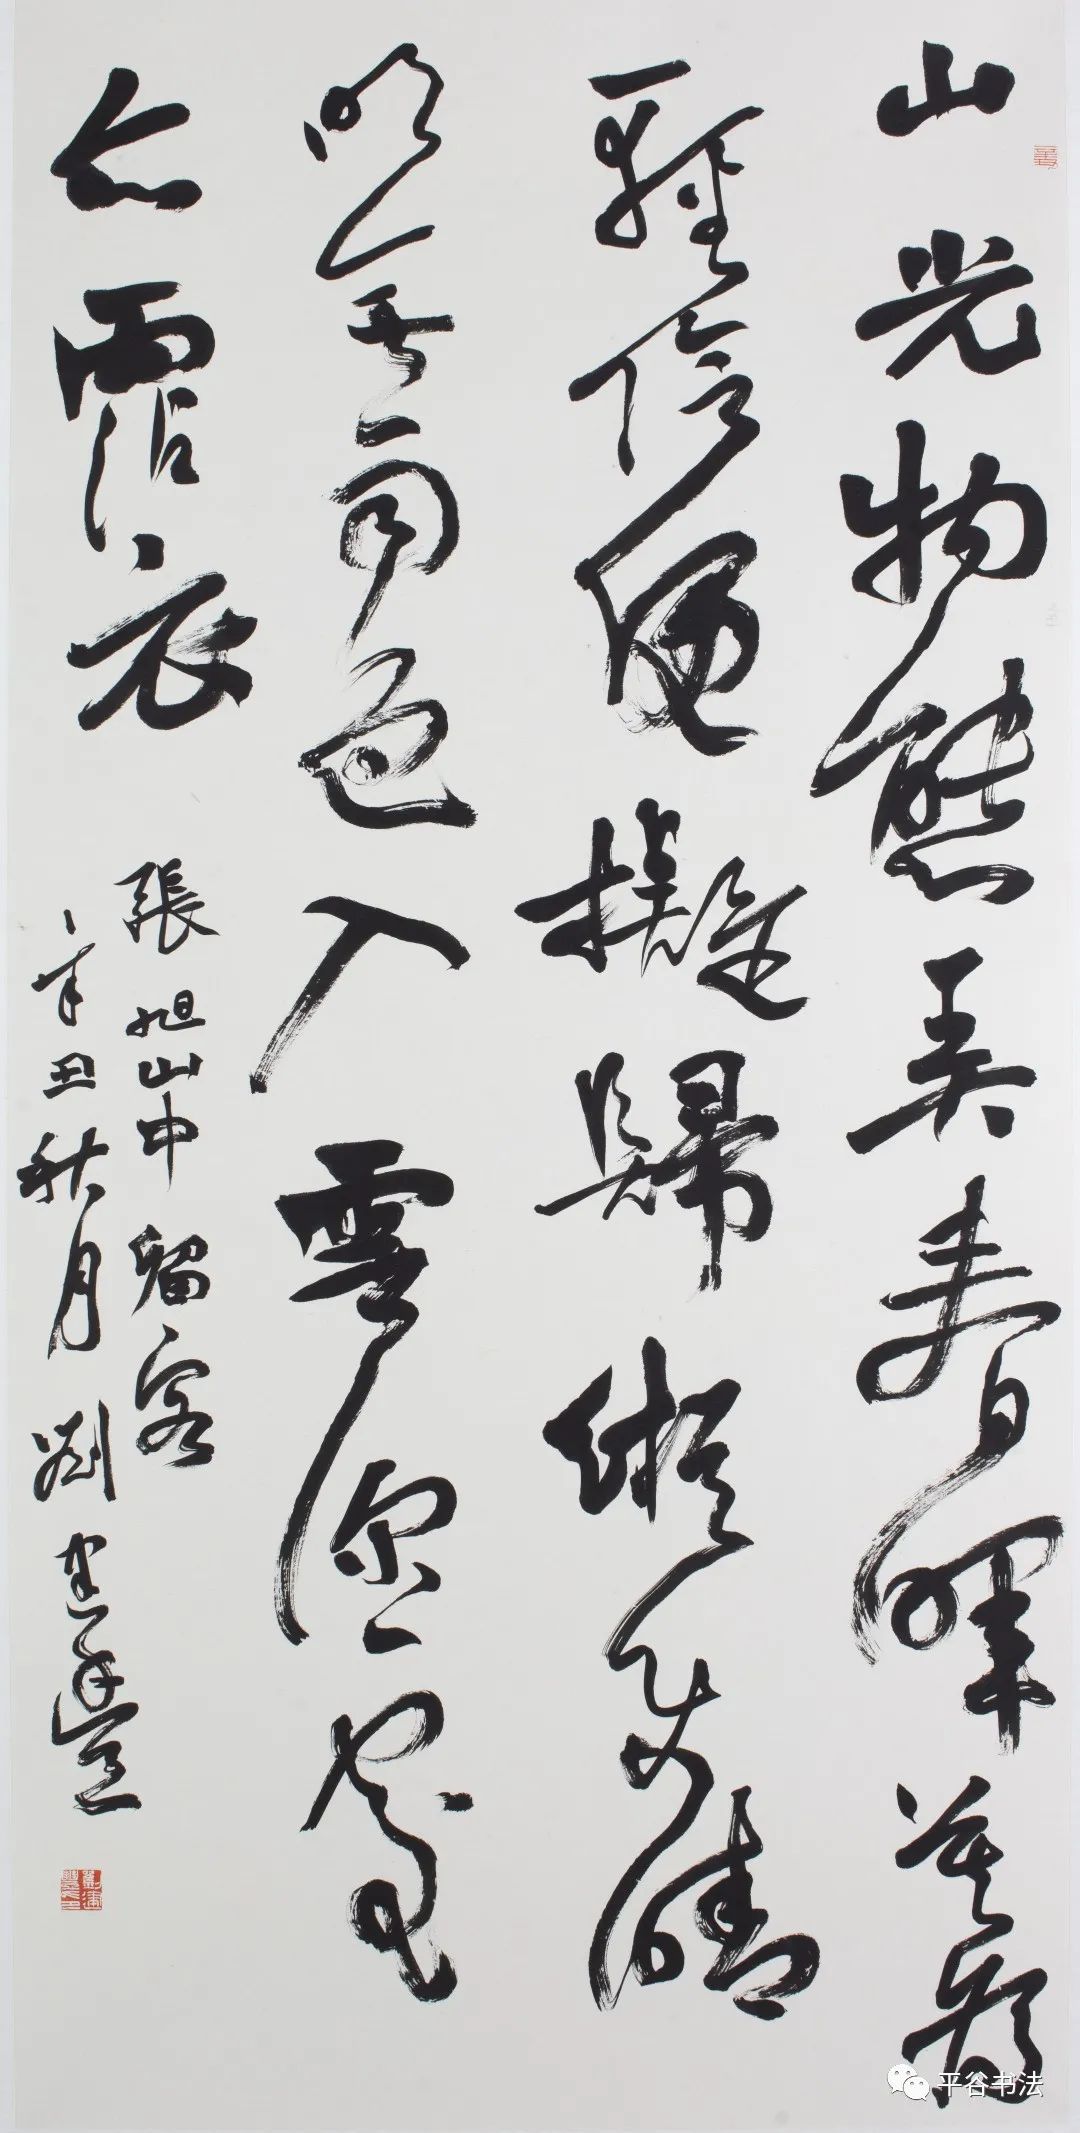 山光物態弄春暉莫為
輕陰便擬歸縱使晴
明無雨色入雲深處
亦霑衣
張旭山中留客
辛丑秋月劉建豐
平谷书法